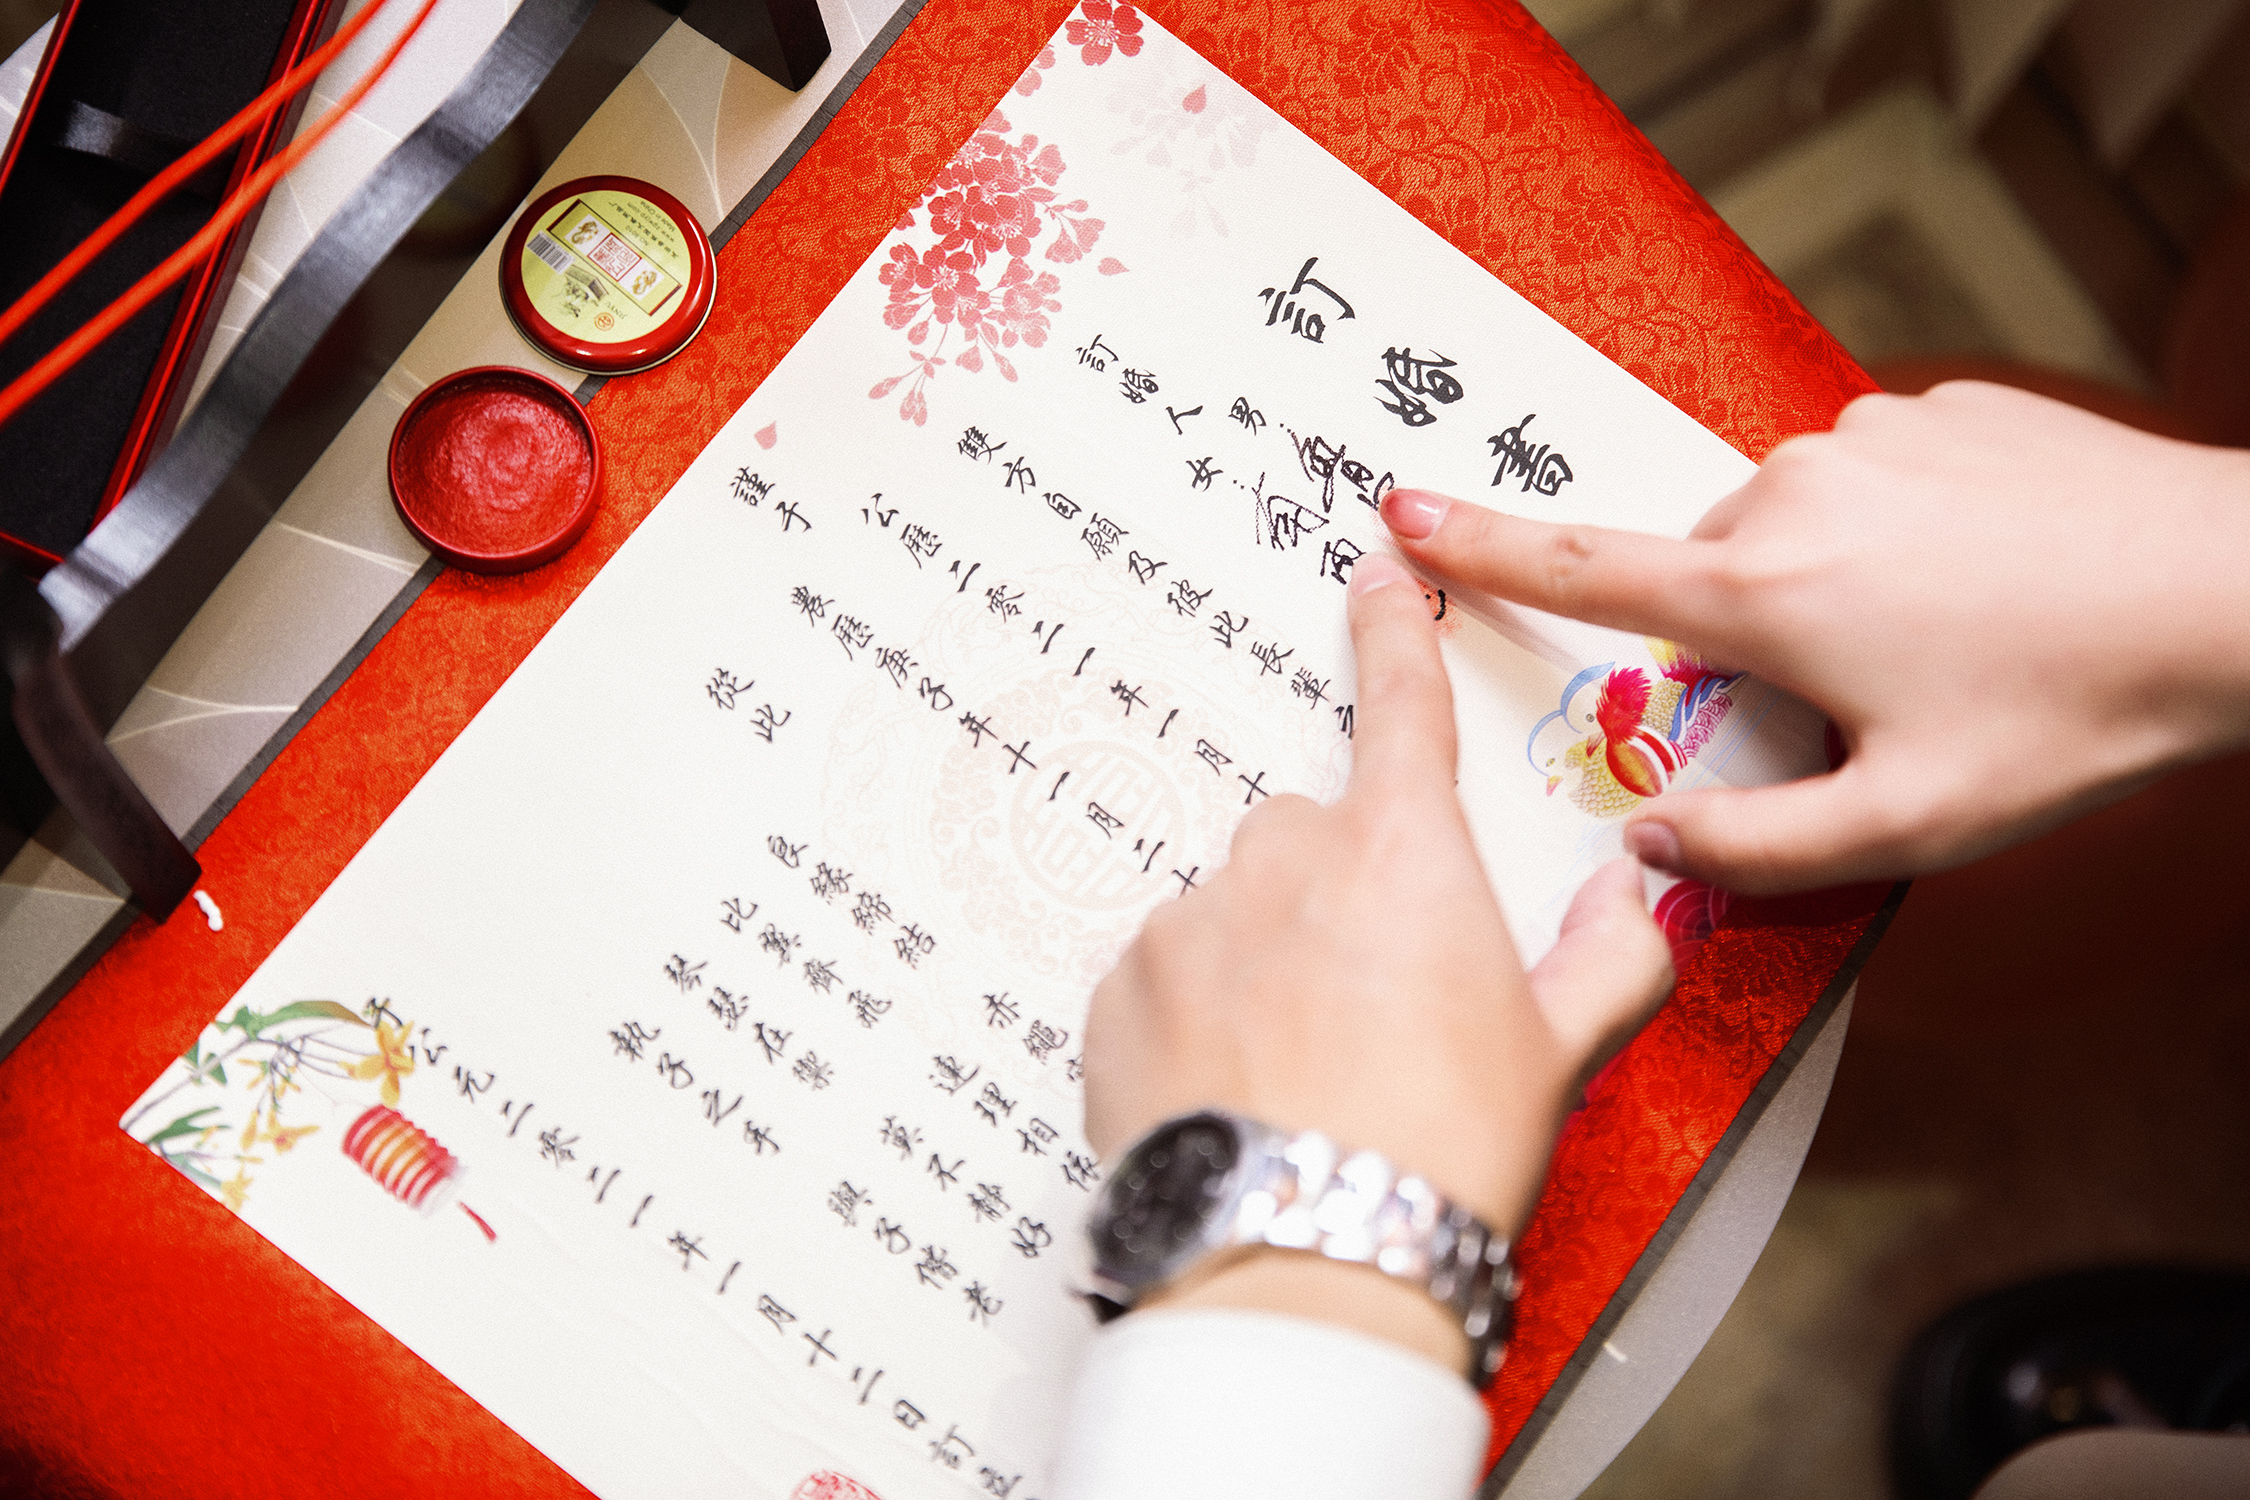 訂婚書
訂婚人 男：
女：
雙方自願及彼此長輩之
謹于 公歷二零二一年一月十
農歷庚子年十一月二十
從此
良緣締結 赤繩
比翼齊飛 連理相依
琴瑟在禦 莫不靜好
執子之手 與子偕老
于公元二零二一年一月十二日訂
Made in China